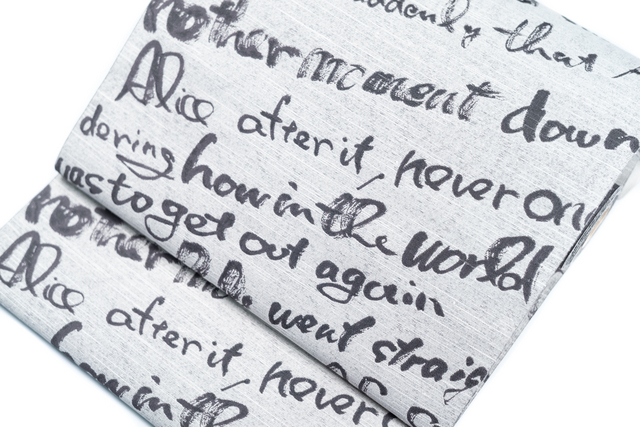 uddenly that
nother moment down
Alice after it, never on
dering how in the world
was to get out again
nother
went straig
Alice after it, never
how in the